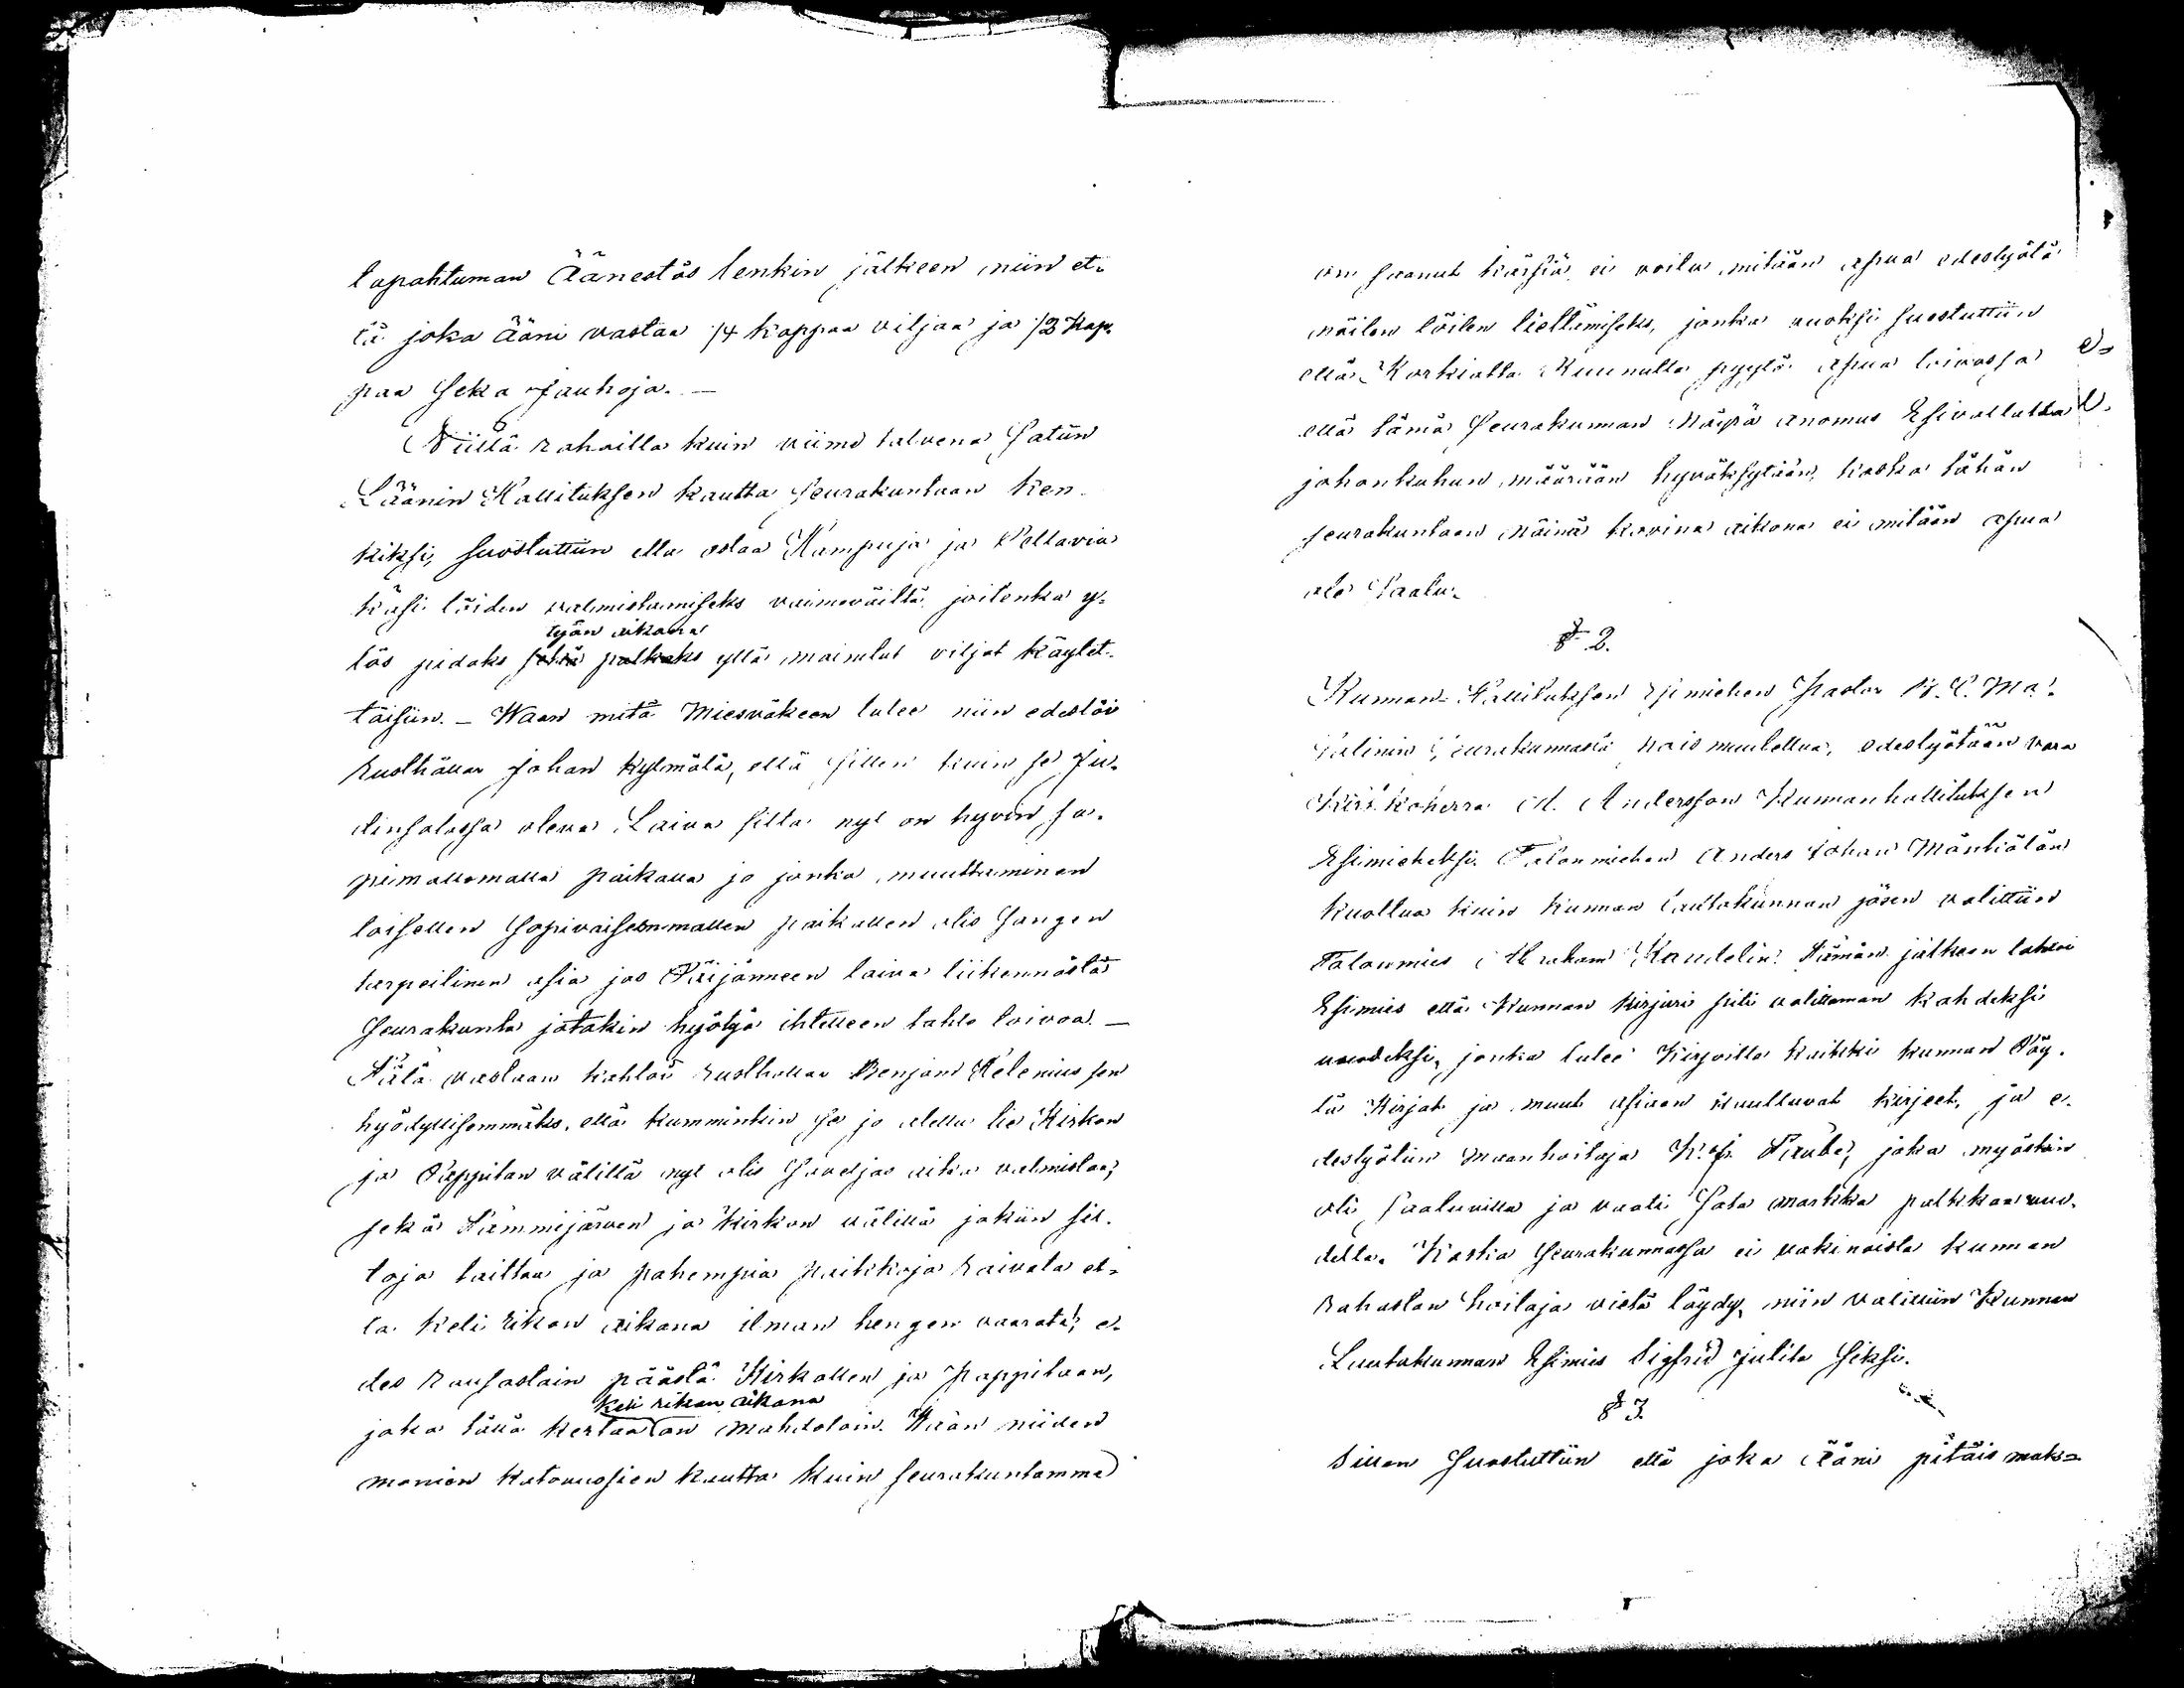 tapahtuman Äänestös lenkin jälkeen niin et-
tä joka ääni vastaa 14 kappaa viljaa ja 12 Kap-
paa Seka Jauhoja. —
Niillä rahailla kuin viime talvena Satiin
Läänin Hallituksen kautta seurakuntaan ken-
kiksi, suostuttiin etta ostaa Hampuja ja Pellavia
käsi töiden valmistamiseks vaimoväiltä joilenka y-
työn aikana
lös pidoks palkaks yllä mainitut viljat käytet-
täisiin. — Waan mitä Miesväkeen tulee niin edestöi
Rusthållar Johan Kylmälä, että sillen kuin se Ju-
dinsalossa oleva Laiva silta nyt on hyvin so-
pimattomalla paikalla ja jonka muuttaminen
toisellen Sopivaisemmallen paikallen olis Sangen
tarpeilinen asia jos Päijänneen laiva liikennöstä
Seurakunta jotakin hyötyä ihtelleen tahto toivoa. —
Tätä vastaan kahtoi Rusthollar Benjam Helenius sen
hyödyllisemmäks, että kumminkin se jo alettu tie Kirkon
ja Pappilan välillä nyt olis Suvejas aika valmistaa;
sekä Tammijärven ja Kirkon välillä jokiin sil-
toja laittaa ja pahempia paikkoja Raivata et-
ta keli rikon aikana ilman hengen vaarata, e-
des Rausaslain päästä Kirkollen ja Pappilaan,
Keli rikon aikana
joka tällä kertaa on mahdotoin. Waan niiden
monien katovuosien kautta kuin seurakuntamme
on saanut kärsiä, ei voitu mitään apua edestyötä
näilen töilen tiettämiseks, jonka vuoksi suostuttiin
että Korkialta Ruunulta pyytä apua toivossa e-
että tämä Seurakunnan Näyrä anomus Esivallalta
johonkuhun määrään hyväksytään, koska tähän
seurakuntaan näinä kovina aikona ei mitään apua
ole Saatu.
§ 2.
Kunnan-Hallituksen Esimiehen Pastor K. E. Ma-
Seurakunnasta pois muutettua, edestyötään vara
Kirkkoherra A. Andersson Kunnanhallituksen
Esimieheksi. Talonmiehen Anders Johan Mäntiälän
kuoltua kuin kunnan Lautakunnan jäsen valittiin
Talonmies Abraham Kandelin. Tämän jälkeen tahtoi
Esimies että Kunnan kirjuri piti valittaman kahdeksi
vuodeksi, jonka tulee Kirjoitta kaikki kunnan Pöy-
tä Kirjat ja muut asiaan kuulluvat kirjeet, ja e-
destyötiin maanhoitaja Taube, joka myöskin
oli Saaluvilla ja vaati Sata markka palkkaa vuo-
delta. Koska Seurakunnassa ei vakinaista kunnan
Rahaston hoitaja vielä löydy, niin valittiin Kunnan
Lautakunnan Esimies Sigfrid Julita Siksi.
§ 3.
Sillen Suostuttiin että joka ääni pitäis mak-